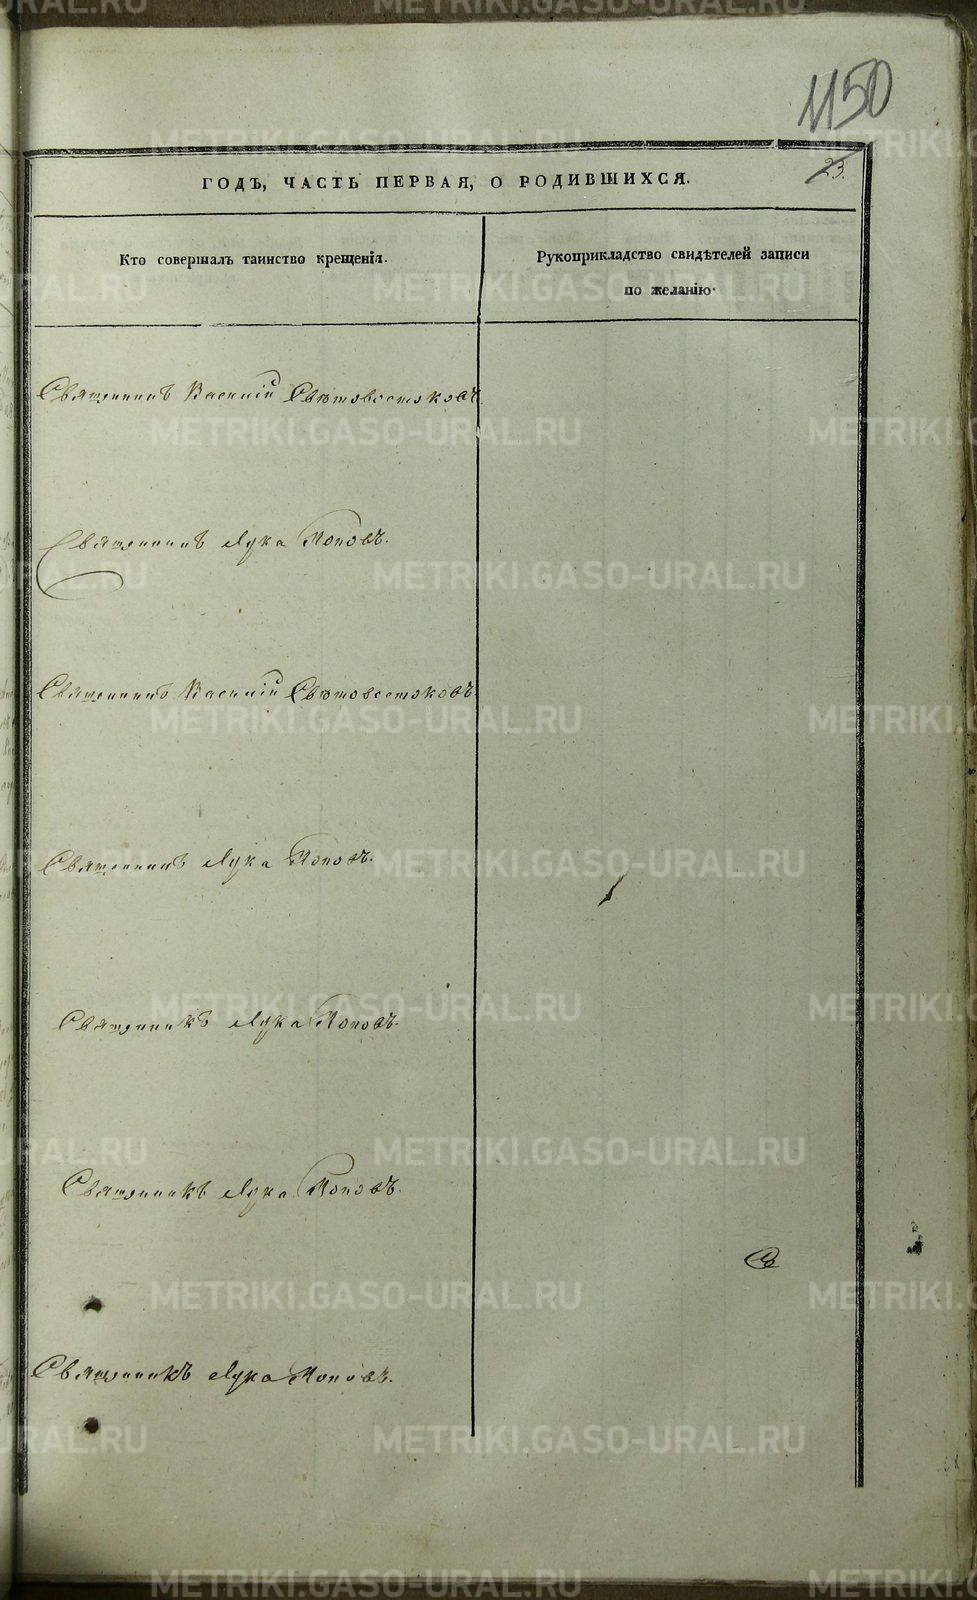 1150
23.
ГОДЪ, ЧАСТЬ ПЕРВАЯ, О РОДИВШИХСЯ.
Кто совершалъ таинство крещенія.
Рукоприкладство свидѣтелей записи
по желанію.
Священникъ Василій Свѣтовостоковъ
Священникъ Лука Поповъ.
Священникъ Василій Свѣтовостоковъ.
Священникъ Лука Поповъ.
Священникъ Лука Поповъ.
Священникъ Лука Поповъ.
Священникъ Лука Поповъ.
METRIKI.GASO-URAL.RU